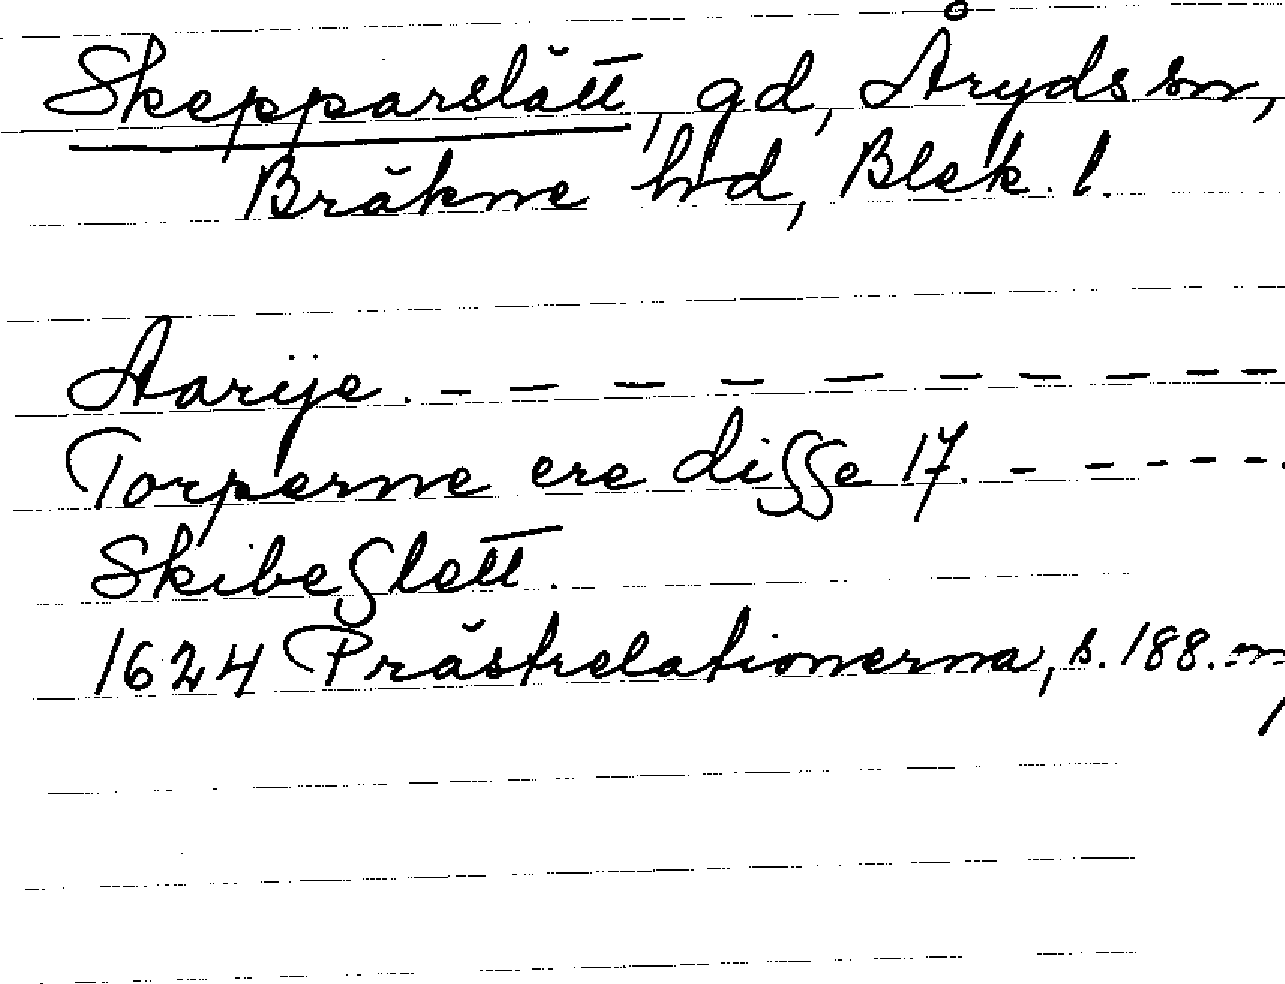 Skepparslätt, gd, Åryds sn,
Bräkne hd, Blek. l.
Aarÿe. – – – – – – – – –
Torperne ere diſſe 17. – – – – – –
Skibeſlett.
1624 Prästrelationerna, s. 188.